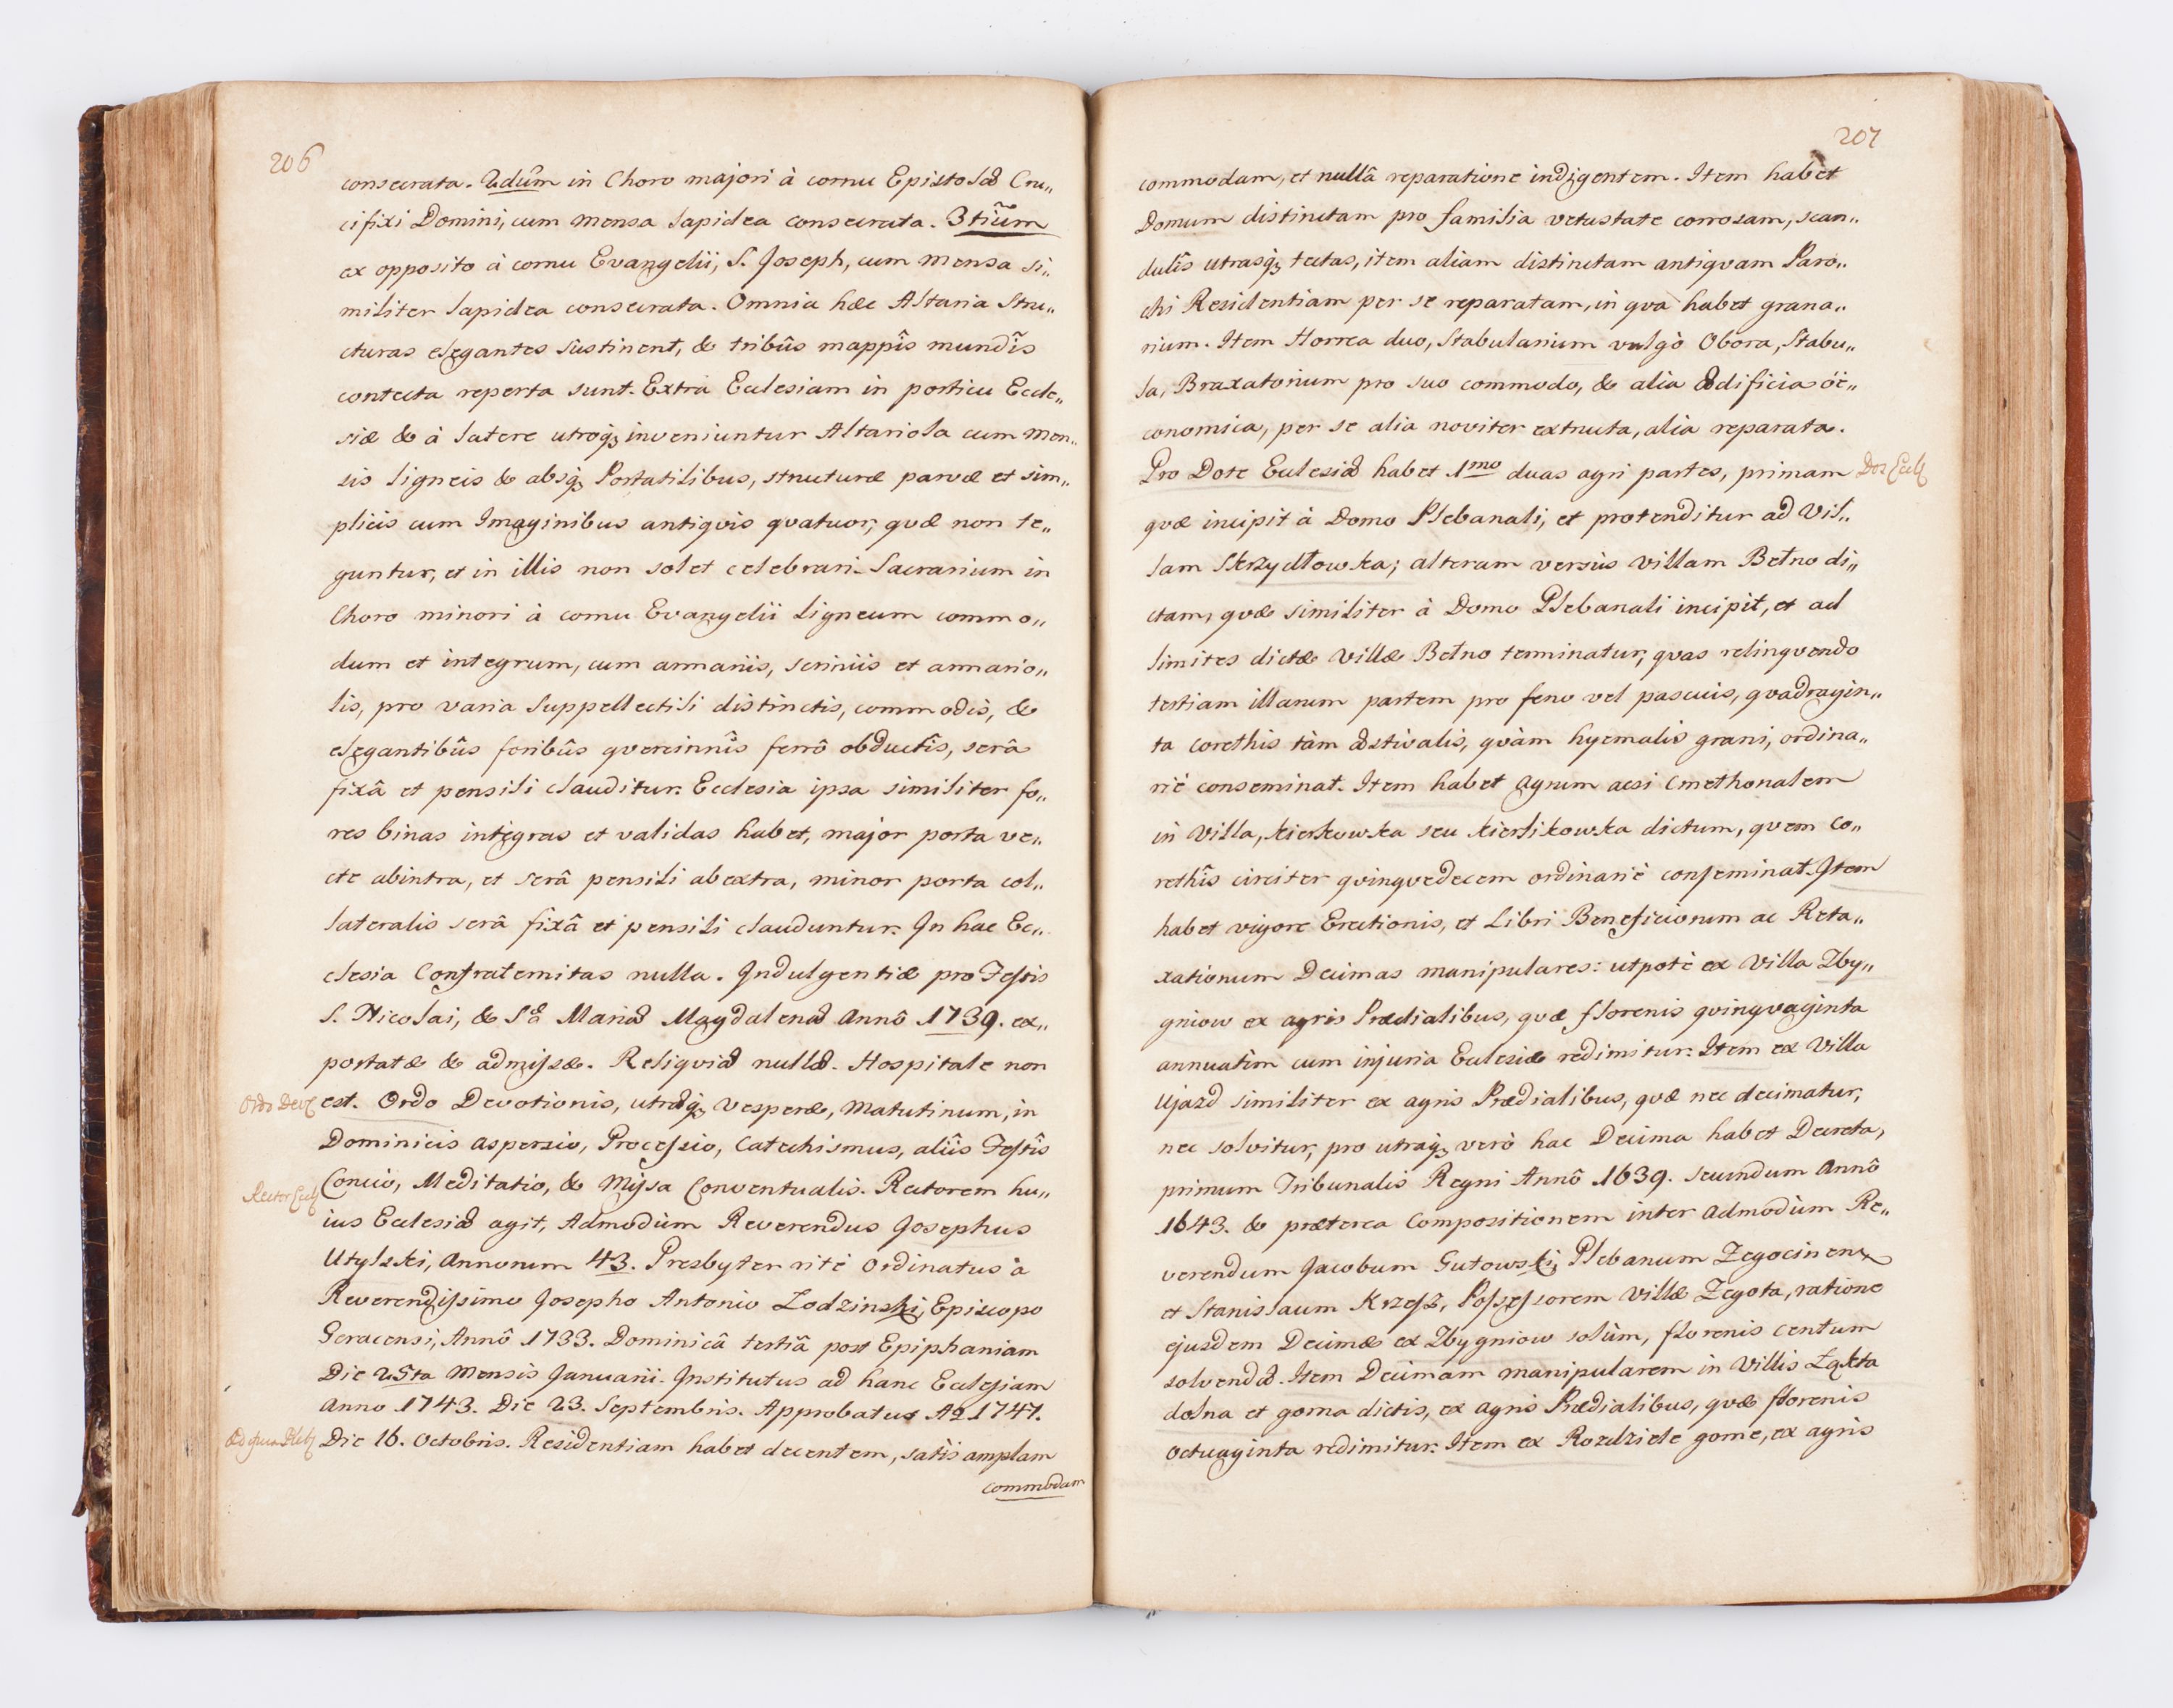 206
consecrata. 2dũm in Choro majori à cornu Epistolæ Cru„
cifixi Domini, cum mensa lapidea consecrata. 3tiũm
ex opposito à cornu Evangelii, S. Joseph, cum mensa si„
militer lapidea consecrata. Omnia hæc Altaria Stru„
cturas elegantes sûstinent, & tribûs mappîs mundîs
contecta reperta sunt. Extra Ecclesiam in porticu Eccle„
siæ & à latere utroq; inveniuntur Altariola cum men„
sis ligneis & absq; Portatilibus, structuræ parvæ et sim„
plicis cum Imaginibus antiqvis qvatuor, qvæ non te„
guntur, et in illis non solet celebrari. Sacrarium in
Choro minori à cornu Evangelii Ligneum commo„
dum et integrum, cum armariis, scriniis et armario„
lis, pro varia Suppellectili distinctis, commodis, &
elegantibûs foribûs qvercinnîs ferrô obductîs, serâ
fixâ et pensili clauditur. Ecclesia ipsa similiter fo„
res binas integras et validas habet, major porta ve„
cte abintra, et serâ pensili abextra, minor porta col„
lateralis serâ fixâ et pensili clauduntur. In hac Ec„
clesia Confraternitas nulla. Indulgentiæ pro Festis
S. Nicolai, & Sæ Mariæ Magdalenæ Annô 1739. ex„
portatæ & admissæ. Reliqviæ nullæ. Hospitale non
Ordo Dev: est. Ordo Devotionis, utræq; Vesperæ, Matutinum, in
Dominicis aspersio, Processio, Catechismus, aliîs Festîs
Concio, Meditatio, & Missa Conventualis. Rectorem hu„
Rector Eccl:
ius Ecclesiæ agit, Admodùm Reverendus Josephus
Utylski, Annorum 43. Presbyter ritè Ordinatus à
Reverendissimo Josepho Antonio Łodzinski, Episcopo
Geracensi, Annô 1733. Dominicâ tertiâ post Epiphaniam
Die 25ta Mensis Januarii. Institutus ad hanc Ecclesiam
Anno 1743. Die 23. Septembris. Approbatus Aô 1747.
Die 16. Octobris. Residentiam habet decentem, satis amplam
commodam
207
commodam, et nullâ reparatione indigentem. Item habet
Domum distinctam pro familia vetustate corrosam, scan„
dulîs utrasq; tectas, item aliam distinctam antiqvam Paro„
chi Residentiam per se reparatam, in qva habet grana„
rium. Item Horrea duo, Stabularium vulgò Obora, Stabu„
la, Braxatorium pro suo commodo, & alia ædificia oe„
conomica, per se alia noviter extructa, alia reparata.
Pro Dote Ecclesiæ habet 1mo duas agri partes, primam Dos Eccl:
qvæ incipit à Domo Plebanali, et protenditur ad Vil„
lam Skrzydłowka; alteram versùs Villam Bełno di„
ctam, qvæ similiter à Domo Plebanali incipit, et ad
limites dictæ Villæ Bełno terminatur, qvas relinqvendo
tertiam illarum partem pro feno vel pascuis, qvadragin„
ta corethis tàm æstivalis, qvàm hyemalis grani, ordina„
riè conseminat. Item habet Agrum acsi Cmethonalem
in Villa, Kierkowska seu Kierlikowska dictum, qvem co„
rethîs circiter qvinqvedecem ordinariè conseminat. Item
habet vigore Erectionis, et Libri Beneficiorum ac Reta„
xationum Decimas manipulares: utpotè ex Villa Zby„
gniow ex agris Prædialibus, qvæ florenis qvinqvaginta
annuatìm cum injuria Ecclesiæ redimitur. Item ex Villa
Ujazd similiter ex agris Prædialibus, qvæ nec decimatur,
nec solvitur, pro utraq; verò hac Decima habet Decreta,
primum Tribunalis Regni Annô 1639. secundum Annô
1643. & præterea Compositionem inter Admodùm Re„
verendum Jacobum Gutowski, Plebanum Zegocinen:
et Stanislaum Krzesz, Possessorem Villæ Zegota, ratione
ejusdem Decimæ ex Zbygniow solùm, florenis centum
solvendæ. Item Decimam manipularem in Villis Łąkta
dolna et gorna dictis, ex agris Prædialibus, qvæ florenis
Octuaginta redimitur. Item ex Rozdziele gorne, ex agris